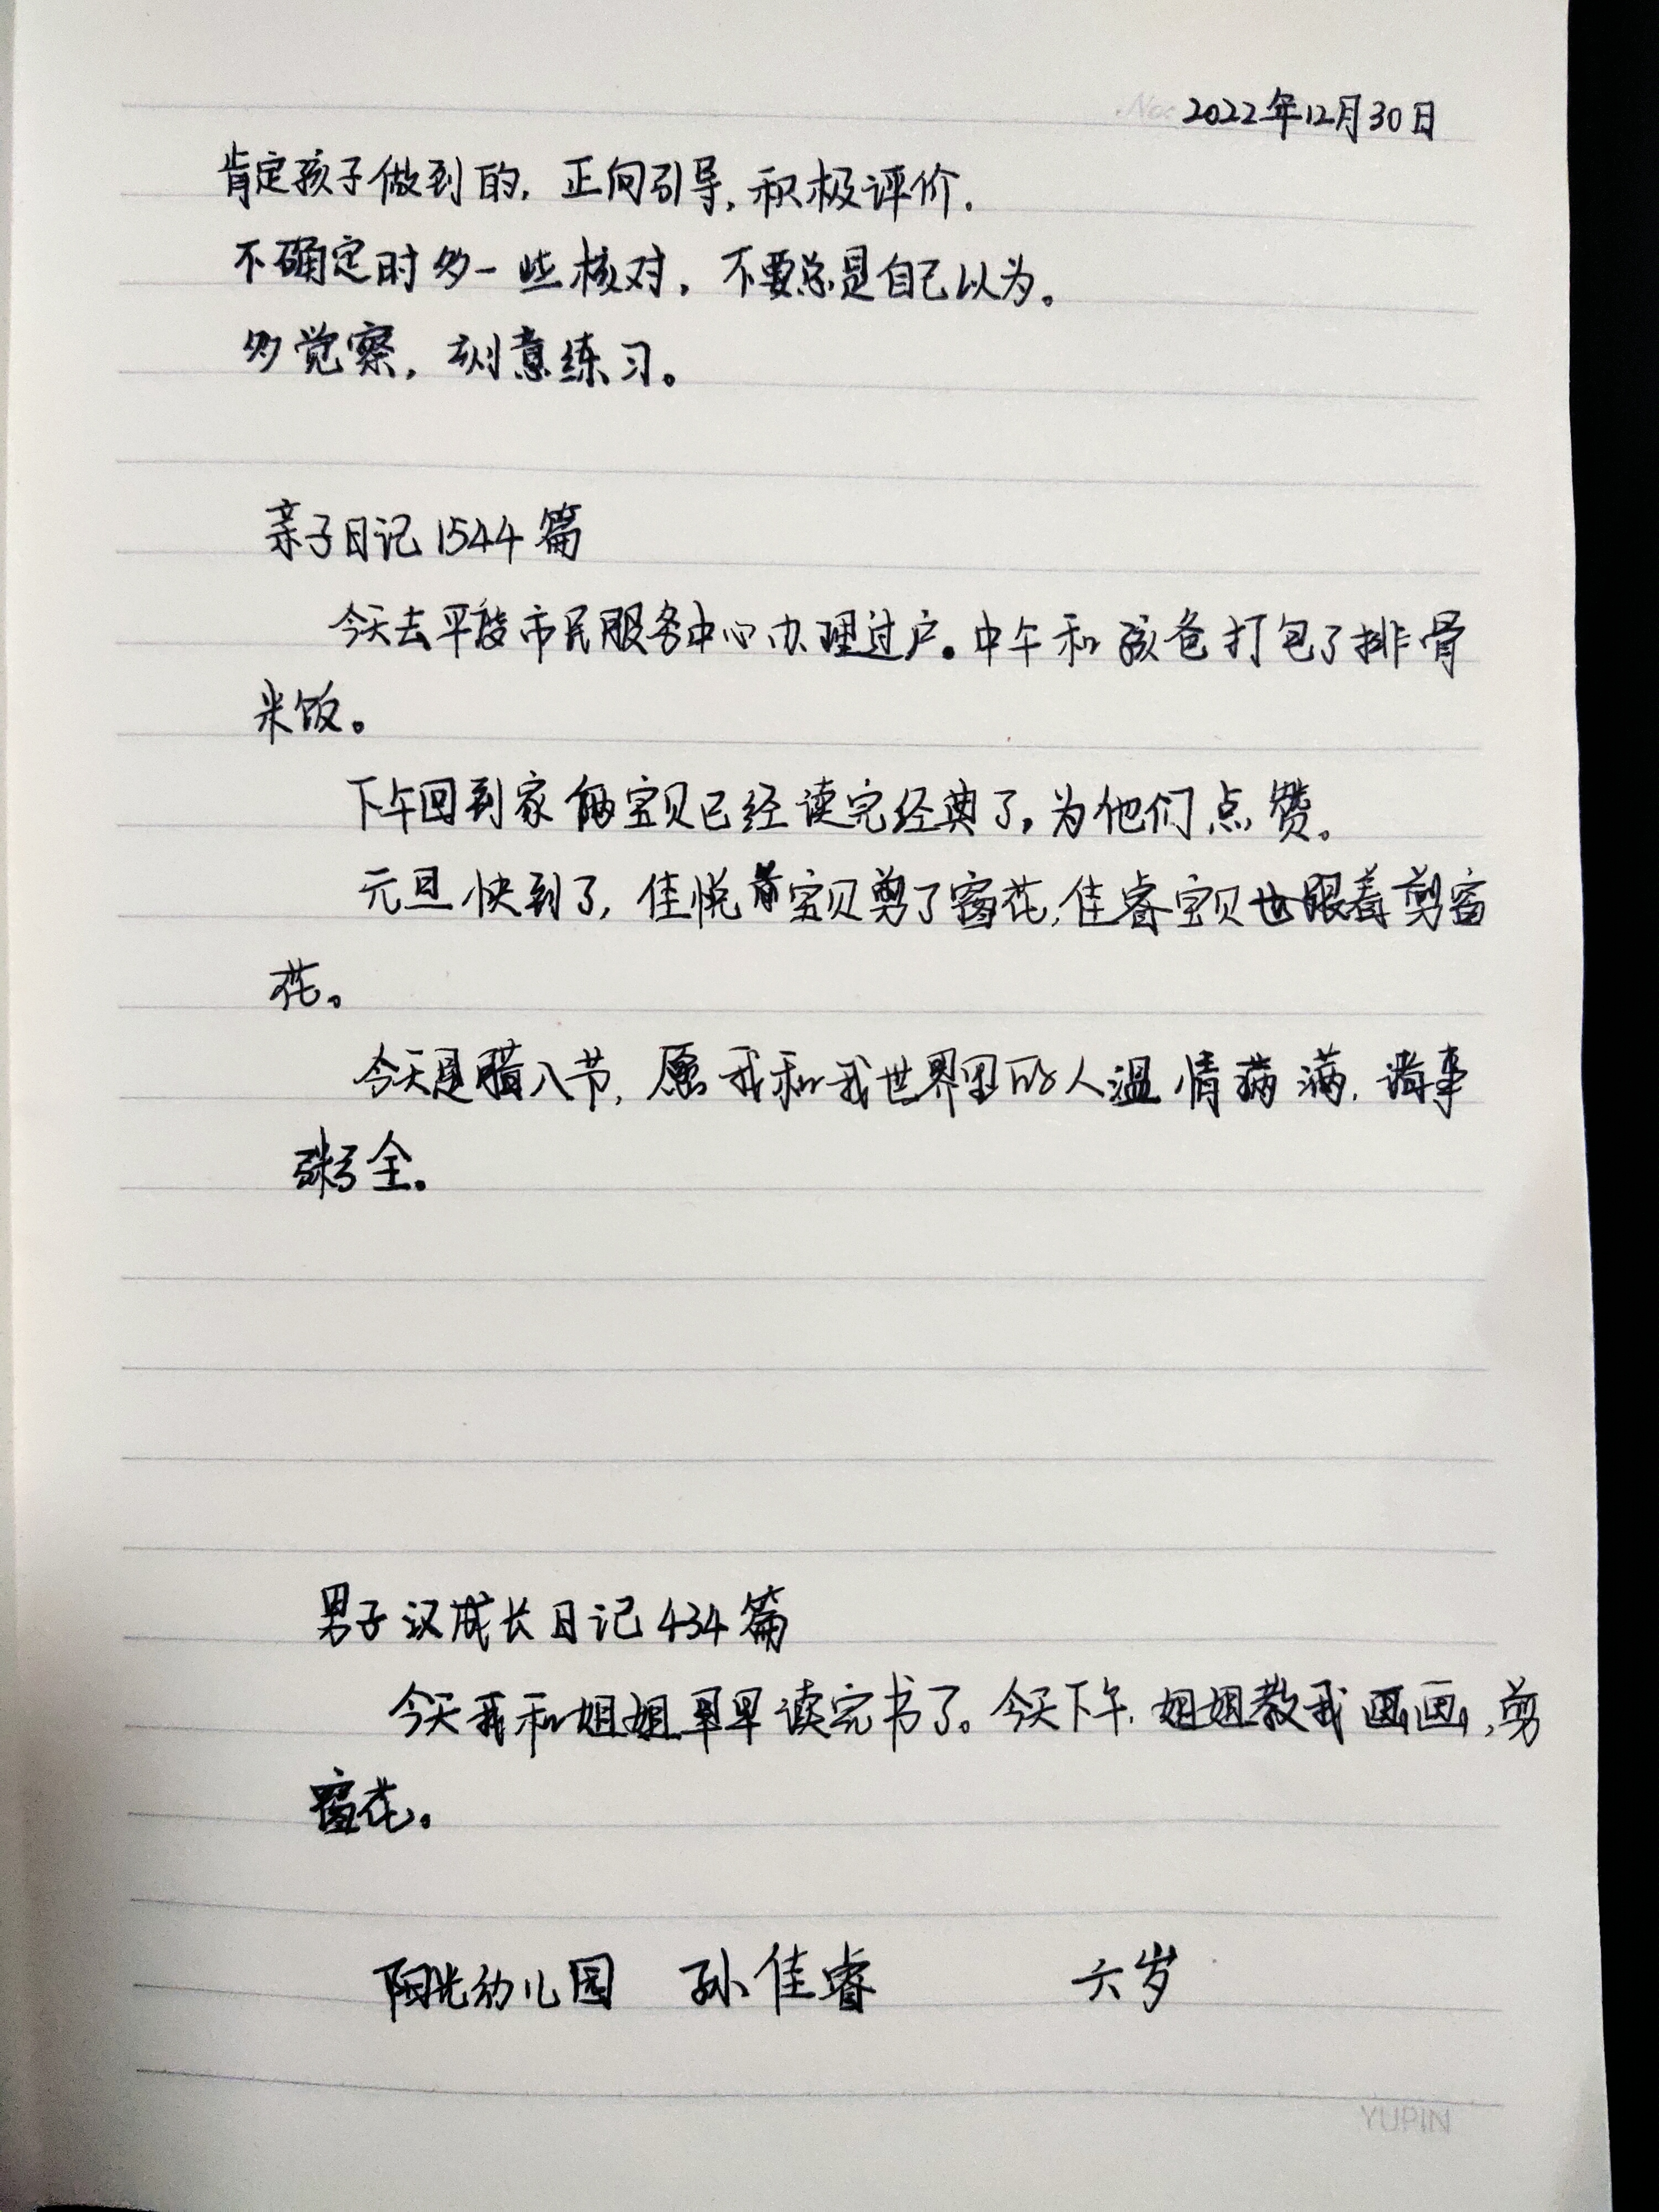 No:
2022年12月30日
肯定孩子做到的,正向引导,积极评价.
不确定时多一些核对,不要总是自己以为。
多觉察,刻意练习。
亲子日记1544篇
今天去平度市民服务中心办理过户。中午和孩爸打包了排骨
米饭。
下午回到家俩宝贝已经读完经典了,为他们点赞。
元旦快到了,佳悦宝贝剪了窗花,佳睿宝贝也跟着剪窗
花。
今天是腊八节,愿我和我世界里的人温情满满,诸事
粥全。
男子汉成长日记434篇
今天我和姐姐早早读完书了。今天下午,姐姐教我画画,剪
窗花。
阳光幼儿园 孙佳睿 六岁
YUPIN